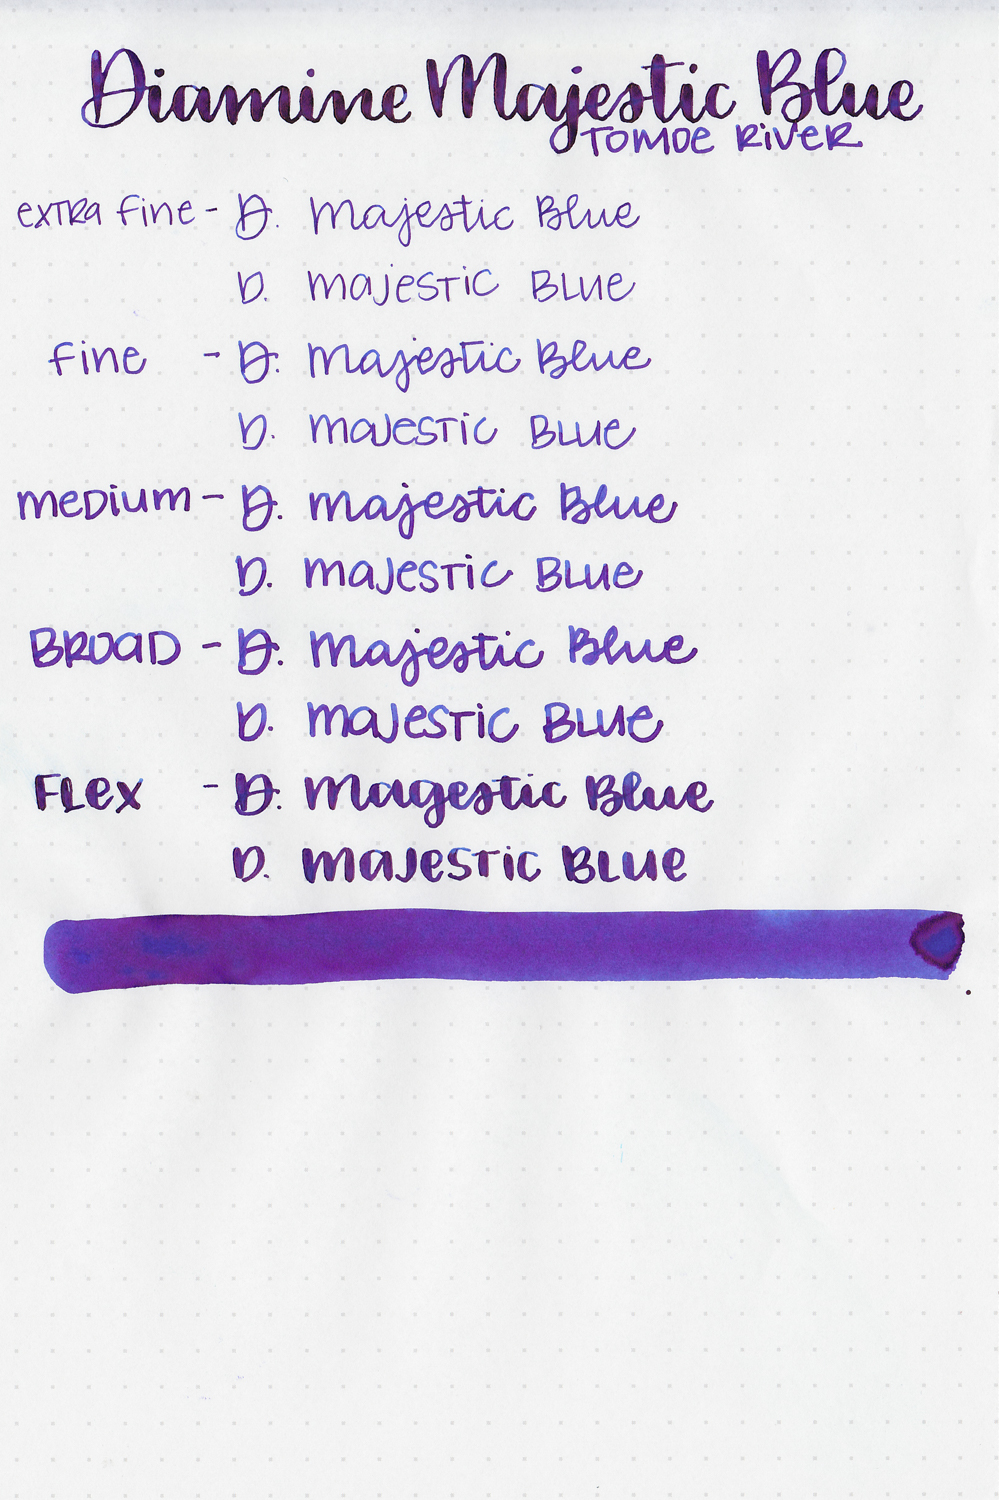 Diamine Majestic Blue
Tomoe River
extra fine - D. Majestic Blue
D. majestic Blue
fine - D. Majestic Blue
D. majestic Blue
medium - D. Majestic Blue
D. majestic Blue
Broad - D. Majestic Blue
D. majestic Blue
Flex - D. Magestic Blue
D. majestic Blue